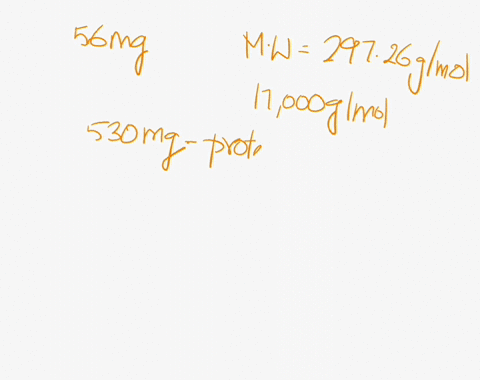 56mg
M.W = 297.26g/mol
17,000g/mol
530mg - prote